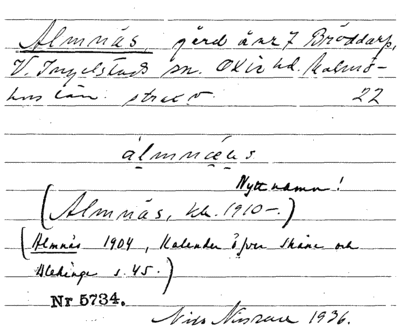 Almnäs, gård å nr 7 Bröddarp,
V. Ingelstads sn. Oxie hd. Malmö-
hus län. 22
álmnæ̀s
Nytt namn!
(Almnäs, kk. 1910-.)
(Almnäs 1904, Kalender öfver Skåne och
Blekinge s. 45.)
Nr 5734.
Nils 1936.